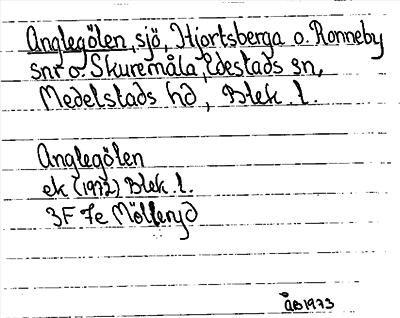 Anglegölen, sjö, Hjortsberga o. Ronneby
snr o. Skuremåla, Edestads sn,
Medelstads hd, Blek. l.
Anglegölen
ek (1972) Blek. l.
3F 7e Mölleryd
ÅB 1973